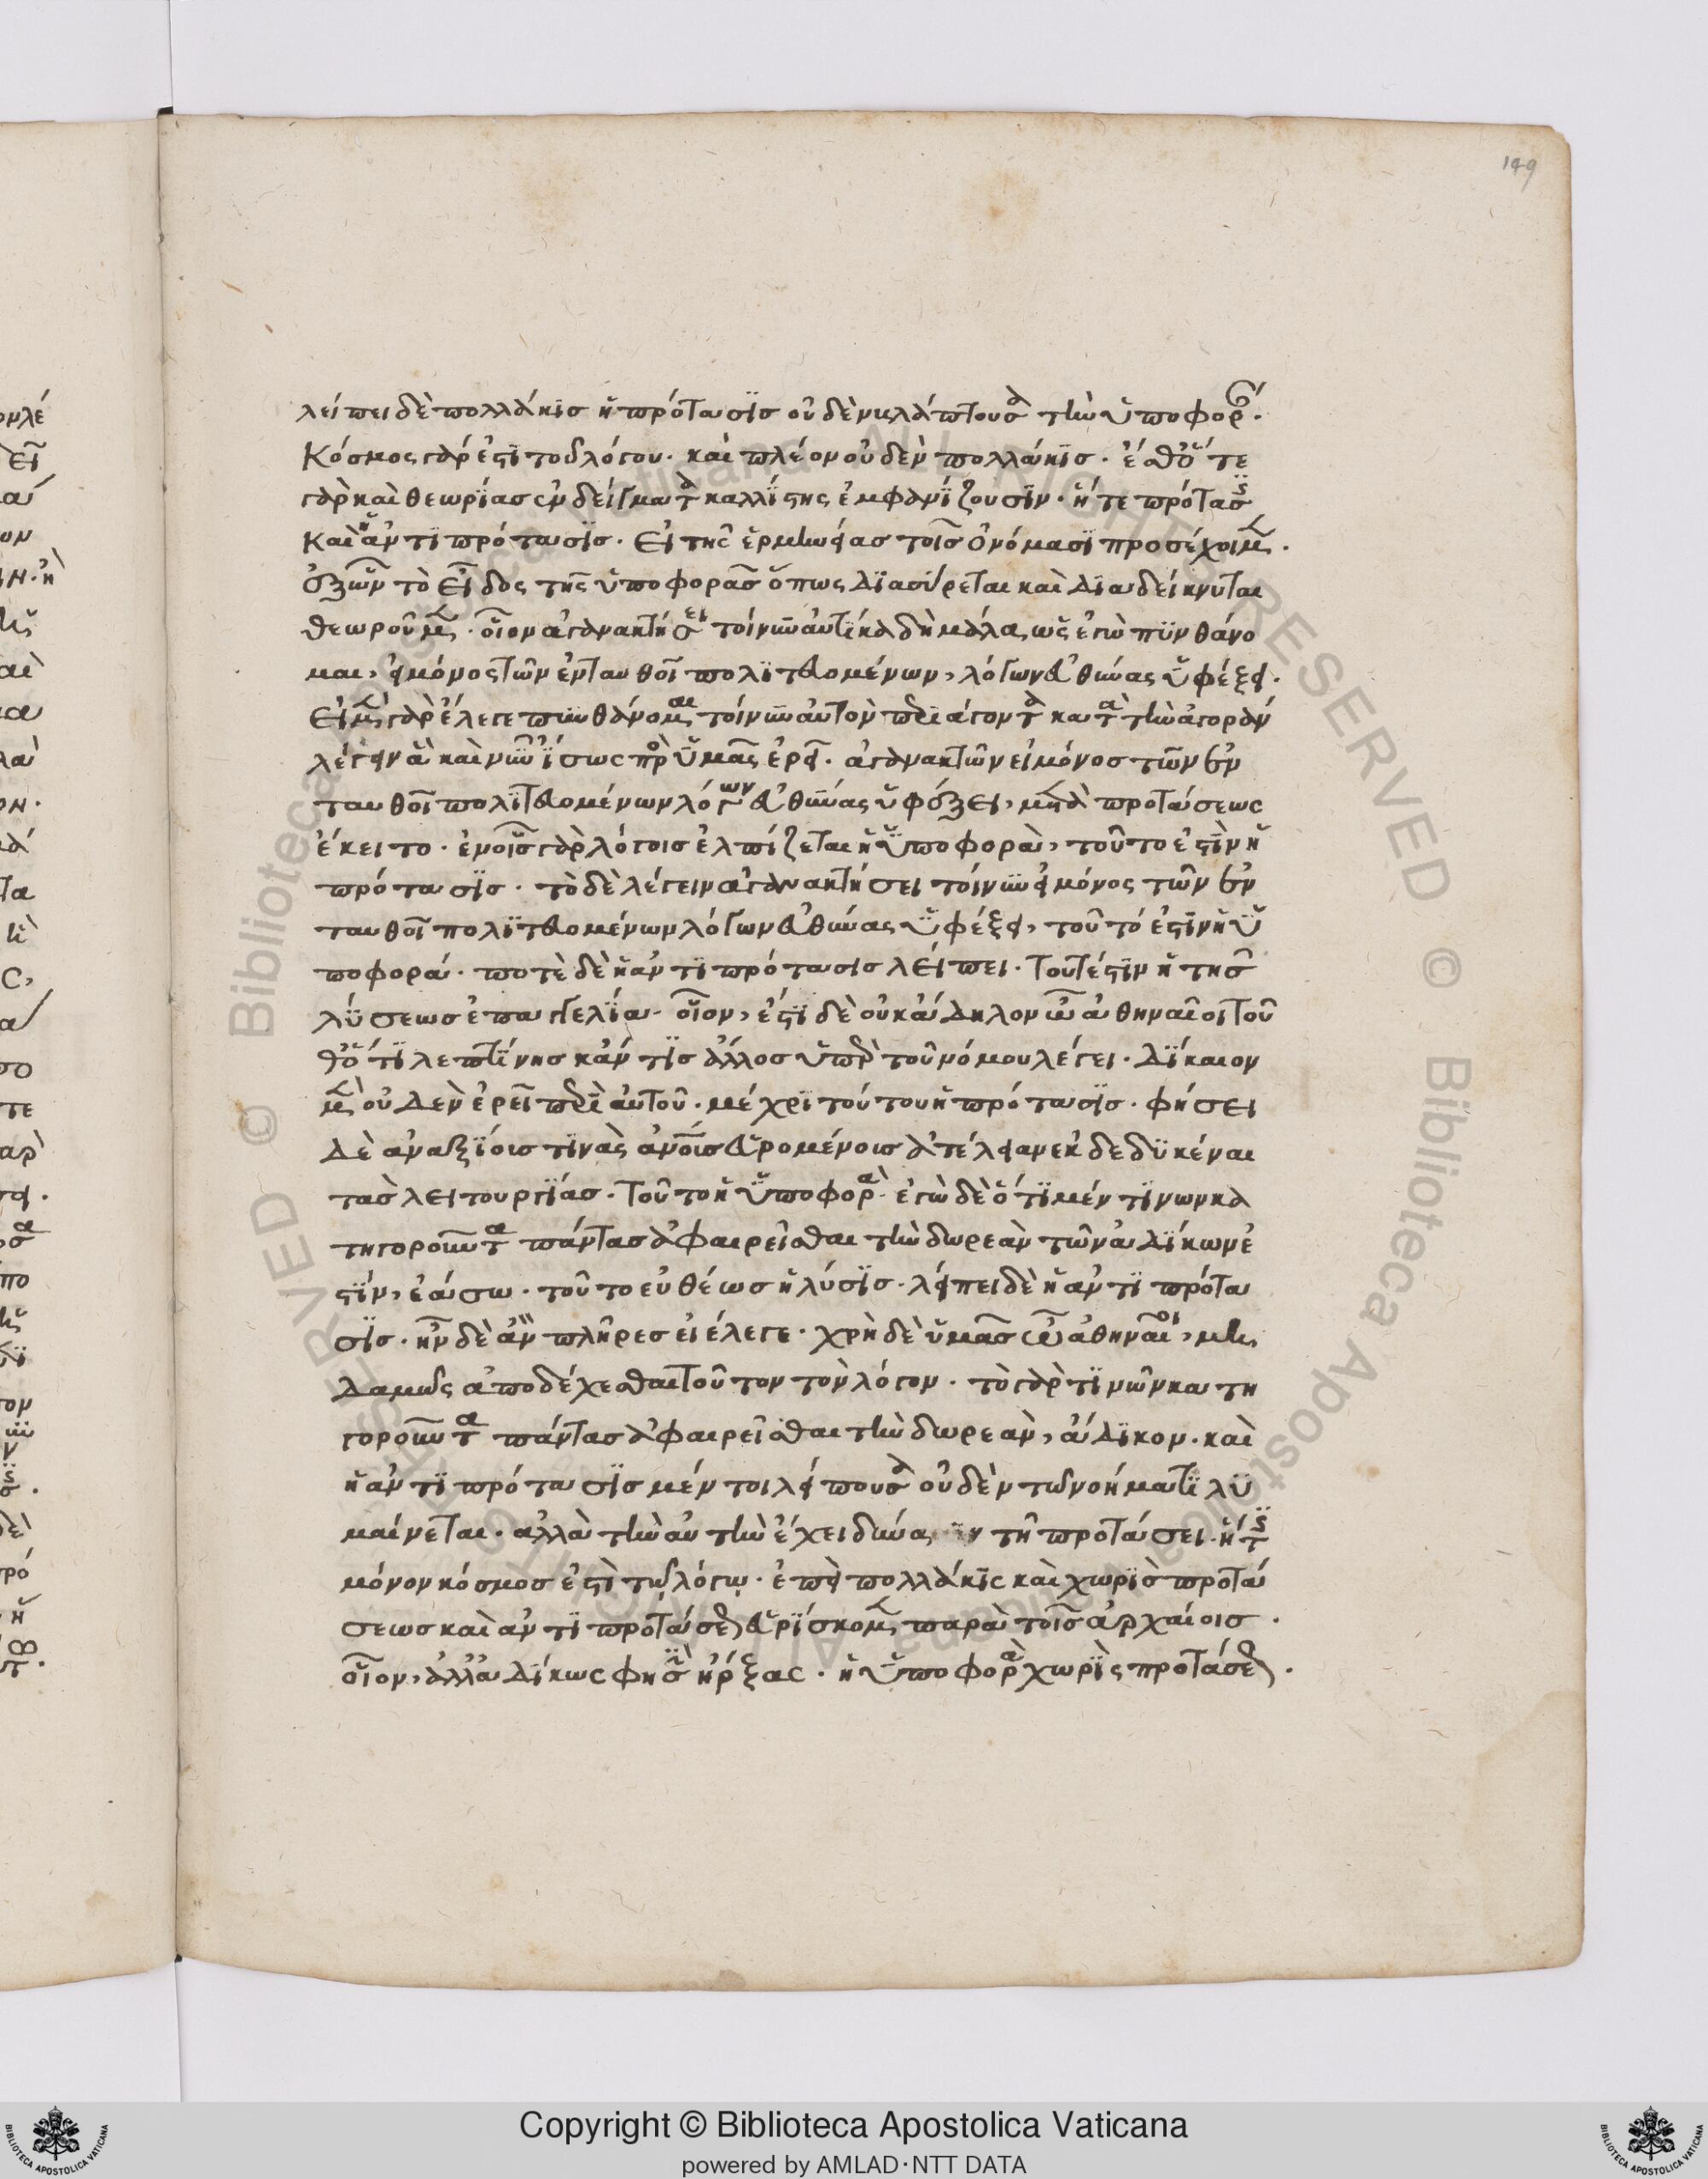 149
λείπει δὲ πολλάκις ἡ πρότασις οὐδὲν βλάπτουσα τὴν ὑποφοράν.
κόσμος γάρ ἐστι τοῦ λόγου. καὶ πλέον οὐδὲν πολλάκις. ἔσθ' ὅτε
γὰρ καὶ θεωρίας ἐνδείγματα καλλίστης ἐμφανίζουσιν. ἥ τε πρότασις
καὶ ἡ ἀντιπρότασις. εἰ τῆς ἑρμηνείας τοῖς ὀνόμασι προσέχοιμεν.
ὀξὺν τὸ εἶδος τῆς ὑποφορᾶς ὅπως διασύρεται καὶ διαδείκνυται
θεωροῦμεν. οἷον ἀγανακτήσει τοίνυν αὐτίκα δὴ μάλα, ὡς ἐγὼ πυνθάνο
μαι, εἰ μόνος τῶν ἐνταυθοῖ πολιτευομένων, λόγων εὐθύνας ὑφέξει.
εἰ μὲν γὰρ ἔλεγε πυνθάνομαι τοίνυν αὐτὸν περιάγοντα κατὰ τὴν ἀγορὰν
λέγειν ἃ καὶ νῦν ἴσως πρὸς ὑμᾶς ἐρεῖ. ἀγανακτῶν εἰ μόνος τῶν ἐν
ταυθοῖ πολιτευομένων λόγων εὐθύνας ὑφέξει, μετὰ προτάσεως
ἔκειτο. ἐν οἷς γὰρ λόγοις ἐλπίζεται ἡ ὑποφορὰ, τοῦτο ἐστὶν ἡ
πρότασις. τὸ δὲ λέγειν ἀγανακτήσει τοίνυν εἰ μόνος τῶν ἐν
ταυθοῖ πολιτευομένων λόγων εὐθύνας ὑφέξει, τοῦτό ἐστιν ἡ ὑ
ποφορά. ποτὲ δὲ ἡ ἀντιπρότασις λείπει. τουτέστιν ἡ τῆς
λύσεως ἐπαγγελία. οἷον, ἔστι δὲ οὐκ ἄδηλον ὦ ἀθηναῖοι τοῦ
θ' ὅτι λεπτίνης κἄν τις ἄλλος ὑπὲρ τοῦ νόμου λέγει. δίκαιον
μὲν οὐδὲν ἐρεῖ περὶ αὐτοῦ. μέχρι τούτου ἡ πρότασις. φήσει
δὲ ἀναξίους τινὰς ἀνοῖς εὑρομένοις ἀτέλειαν ἐκδεδυκέναι
τὰς λειτουργίας. τοῦτο ἡ ὑποφορά. ἐγὼ δὲ ὅτι μέν τινων κα
τηγοροῦντα πάντας ἀφαιρεῖσθαι τὴν δωρεὰν τῶν ἀδίκων ἐ
στίν, ἐάσω. τοῦτο εὐθέως ἡ λύσις. λείπει δὲ ἡ ἀντιπρότα
σις. ἦν δὲ ἂν πλῆρες εἰ ἔλεγε. χρὴ δὲ ὑμᾶς ὦ ἀθηναῖοι, μη
δαμῶς ἀποδέχεσθαι τοῦτον τὸν λόγον. τὸ γάρ τινῶν κατη
γοροῦντα πάντας ἀφαιρεῖσθαι τὴν δωρεὰν, ἄδικον. καὶ
ἡ ἀντιπρότασις μέν τοι λείπουσα οὐδὲν τῷ νοήματι λυ
μαίνεται. ἀλλὰ τὴν αὐτὴν ἔχει δύναμιν τῇ προτάσει. ἥτις
μόνον κόσμος ἐστὶ τῷ λόγῳ. ἐπεὶ πολλάκις καὶ χωρὶς προτά
σεως καὶ ἀντιπροτάσεως εὑρίσκομεν παρὰ τοῖς ἀρχαίοις.
οἷον, ἀλλ' ἀδίκως φησὶν ἦρξας. ἡ ὑποφορὰ χωρὶς προτάσεως.
Copyright © Biblioteca Apostolica Vaticana
powered by AMLAD·NTT DATA